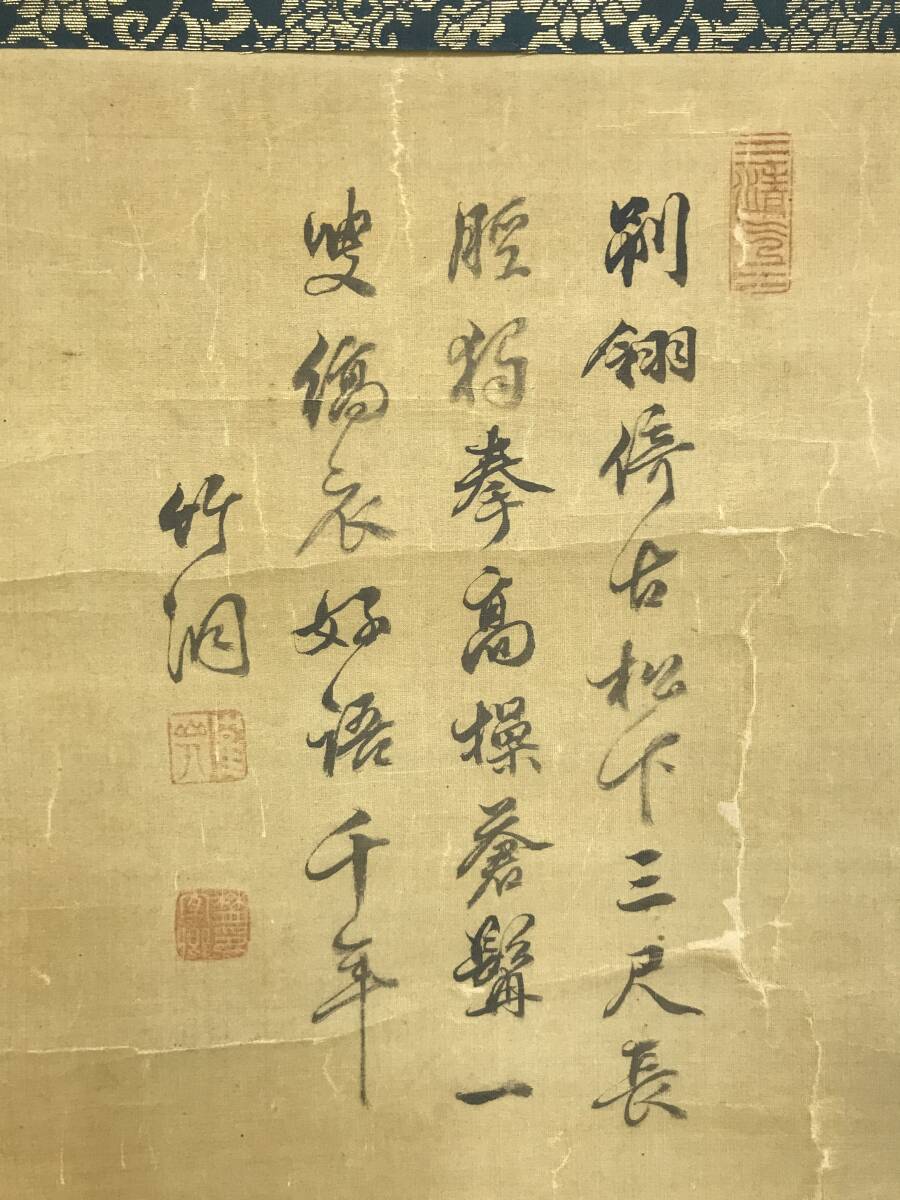 刷翎倚古松下三尺長
脛獨拳高操蒼髯一
叟縞衣好語千年
竹洞